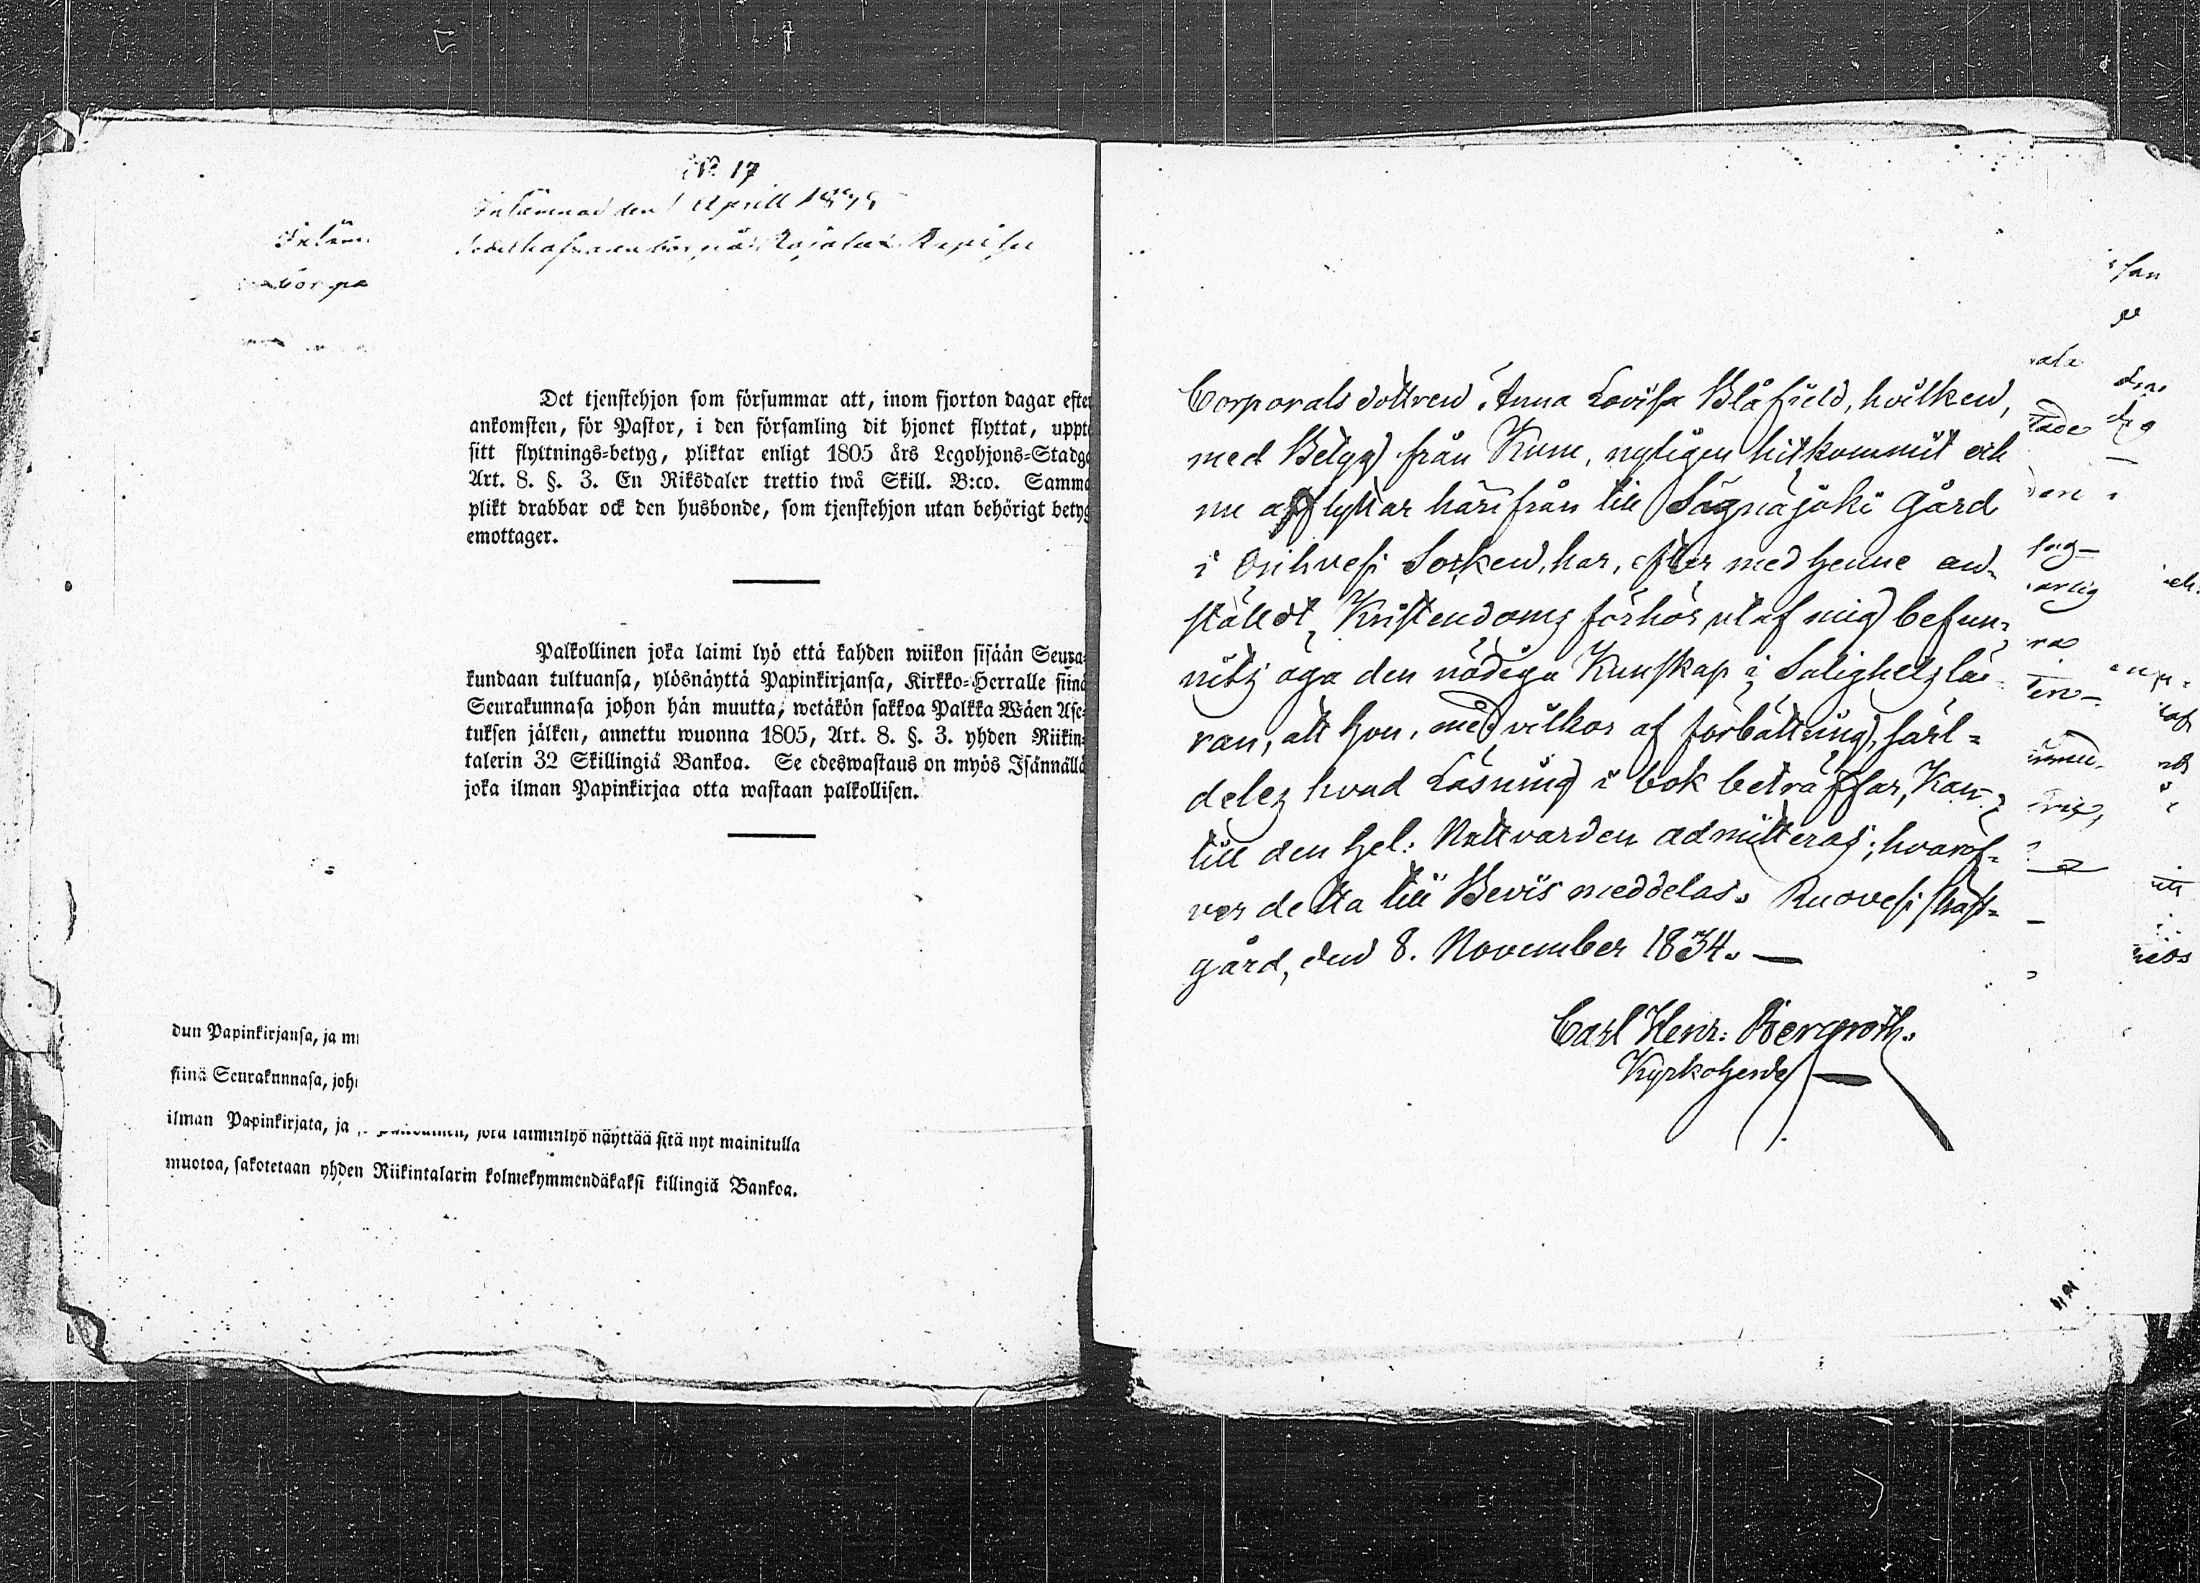 No 17
Inlämnad den 1 Aprill 1835
Inläm
bör på
Det tjenstehjon som försummar att, inom fjorton dagar efter
ankomsten, för Pastor, i den församling dit hjonet flyttat, uppte
sitt flyttnings-betyg, pliktar enligt 1805 års Legohjons-Stadga
Art. 8. §. 3. En Riksdaler trettio twå Skill. B:co. Samma
plikt drabbar ock den husbonde, som tjenstehjon utan behörigt betyg
emottager.
Palkollinen joka laimi lyö että kahden wiikon sisään Seura-
kundaan tultuansa, ylösnäyttä Papinkirjansa, Kirkko-Herralle siinä
Seurakunnasa johon hän muutta, wetäkön sakkoa Palkka Wäen Ase-
tuksen jälken, annettu wuonna 1805, Art. 8. §. 3. yhden Riikin-
talerin 32 Skillingiä Bankoa. Se edeswastaus on myös Isännällä
joka ilman Papinkirjaa otta wastaan palkollisen.
dun Papinkirjansa, ja m
siinä Seurakunnasa, joh
ilman Papinkirjata, ja joka laiminlyö näyttää sitä nyt mainitulla
muotoa, sakotetaan yhden Riikintalarin kolmekymmendäkaksi killingiä Bankoa.
Corporals dottren Anna Lovisa Blåfield, hvilken,
med Betyg från Kum, nyligen hitkommit och
nu afflyttar härifrån till Sägnäjoki Gård
i Orihvesi Socken, har, efter med henne an-
stäldt Kristendoms förhör, utaf mig befun-
nits äga den nödiga Kunskap i Salighets lä-
ran, att hon, med vilkor af förbättring, särl-
deles hvad Läsning i bok beträffar, Kan
till den Hel: Nattvarden admitteras; hvaröf-
ver detta till Bevis meddelas. Ruovesi Prest-
gård, den 8. November 1834. —
Carl Henr: Bergroth.
Kyrkoherde